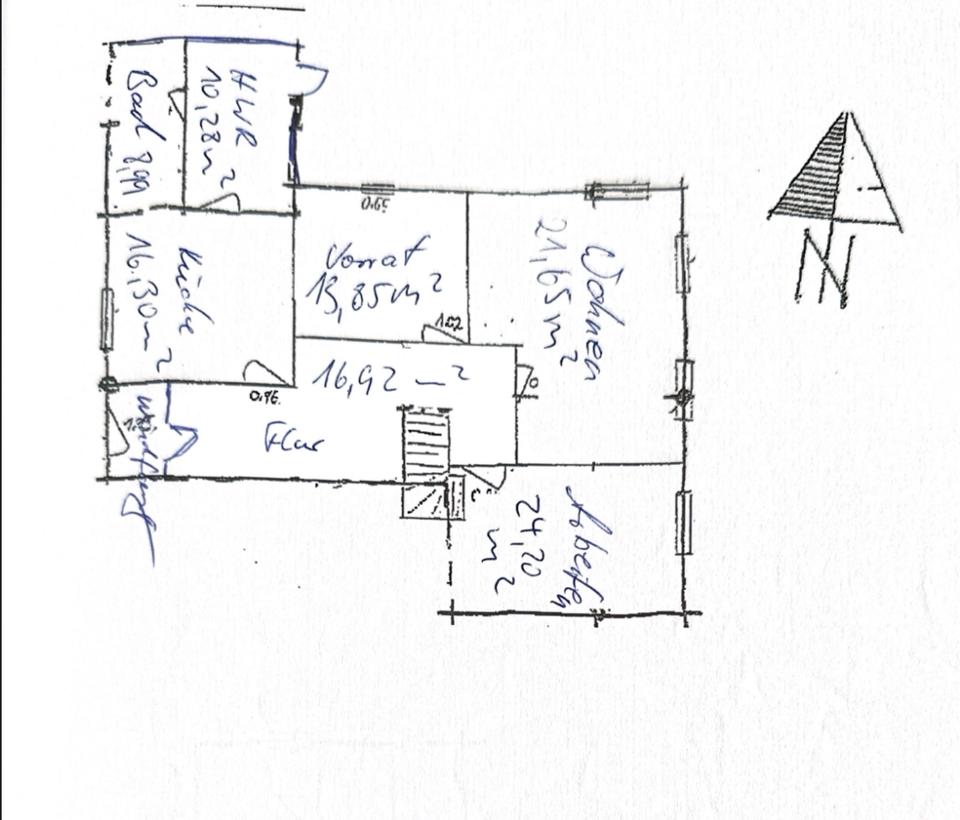 Bad 8,99
HWR
10,28m²
0.65
Vorrat
13,85m²
Wohnen
21,65m²
Küche
16,130m²
1.02
16,92 m²
0.76
Flur
Windfang
Arbeiten
24,20
m²
N